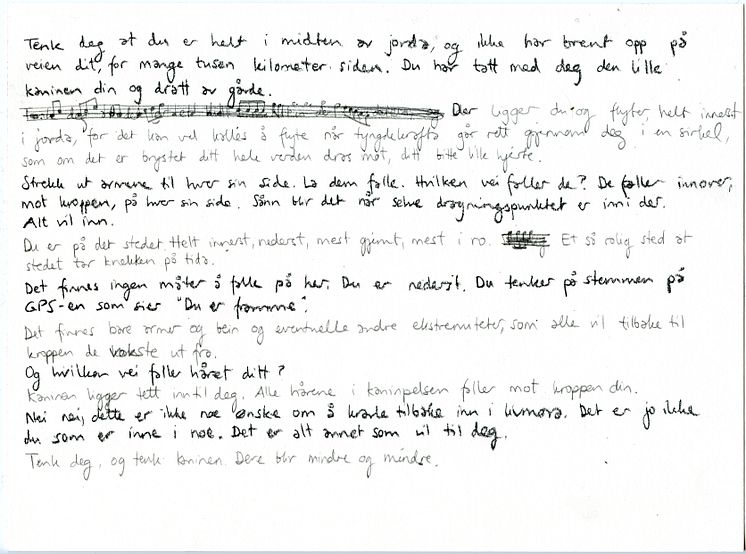 Tenk deg at du er helt i midten av jorda, og ikke har brent opp på
veien dit, for mange tusen kilometer siden. Du har tatt med deg den lille
kaninen din og dratt av gårde.
Der ligger du og flyter, helt innerst
i jorda, for det kan vel kalles å flyte når tyngdekrafta går rett gjennom deg i en sirkel,
som om det er brystet ditt hele verden dras mot, ditt bitte lille hjerte.
Strekk ut armene til hver sin side. La dem falle. Hvilken vei faller de? De faller innover,
mot kroppen, på hver sin side. Sånn blir det når selve dragningspunktet er inni der.
Alt vil inn.
Du er på det stedet. Helt innerst, nederst, mest gjemt, mest i ro. Et så rolig sted at
stedet tar knekken på tida.
Det finnes ingen måter å falle på her. Du er nederst. Du tenker på stemmen på
GPS-en som sier "Du er framme".
Det finnes bare armer og bein og eventuelle andre ekstremiteter, som alle vil tilbake til
kroppen de vokste ut fra.
Og hvilken vei faller håret ditt?
Kaninen ligger tett inntil deg. Alle hårene i kaninpelsen faller mot kroppen din.
Nei nei, dette er ikke noe ønske om å kravle tilbake inn i livmora. Det er jo ikke
du som er inne i noe. Det er alt annet som vil til deg.
Tenk deg, og tenk kaninen. Dere blir mindre og mindre.